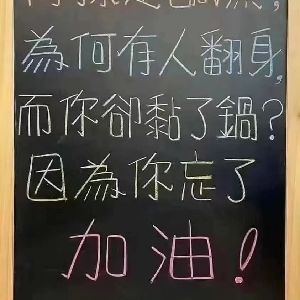 為何有人翻身,
而你卻黏了鍋?
因為你忘了
加油!